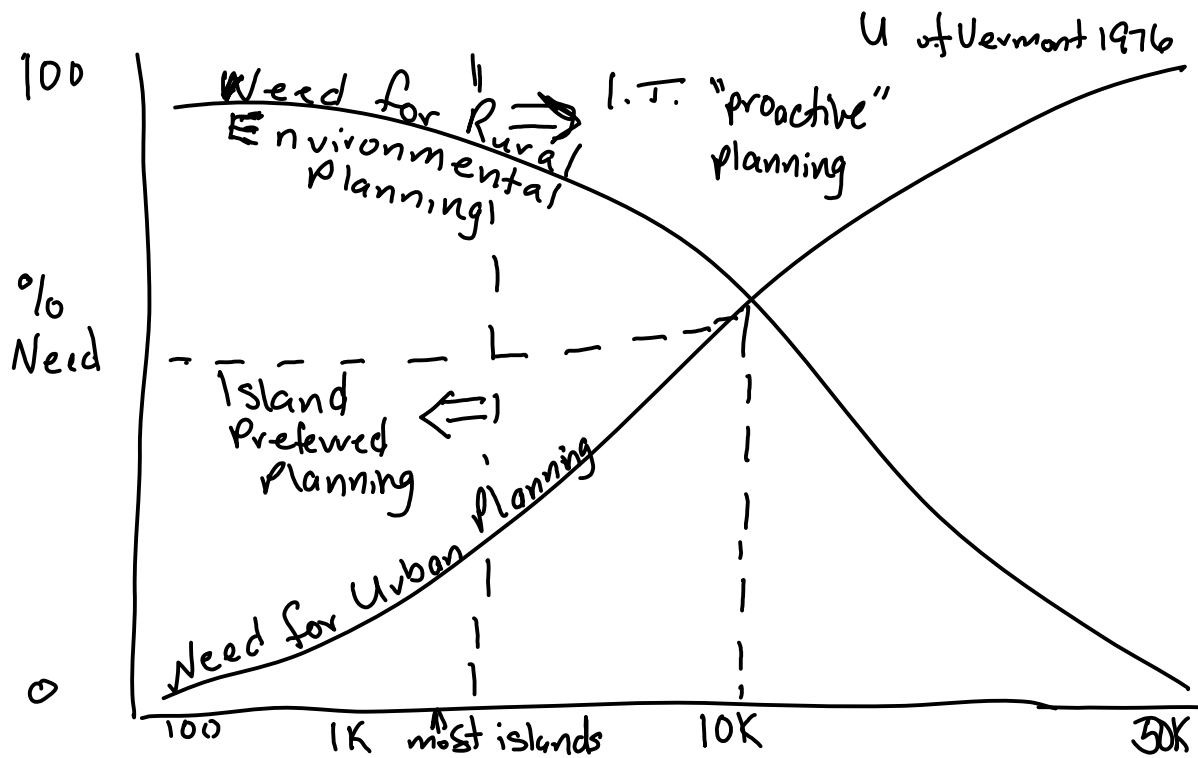 U of Vermont 1976
100
Need for Rural
Environmental
Planning
I.T. "proactive"
planning
%
Need
Island
Preferred
Planning
Need for Urban Planning
0
100
1K
most islands
10K
50K